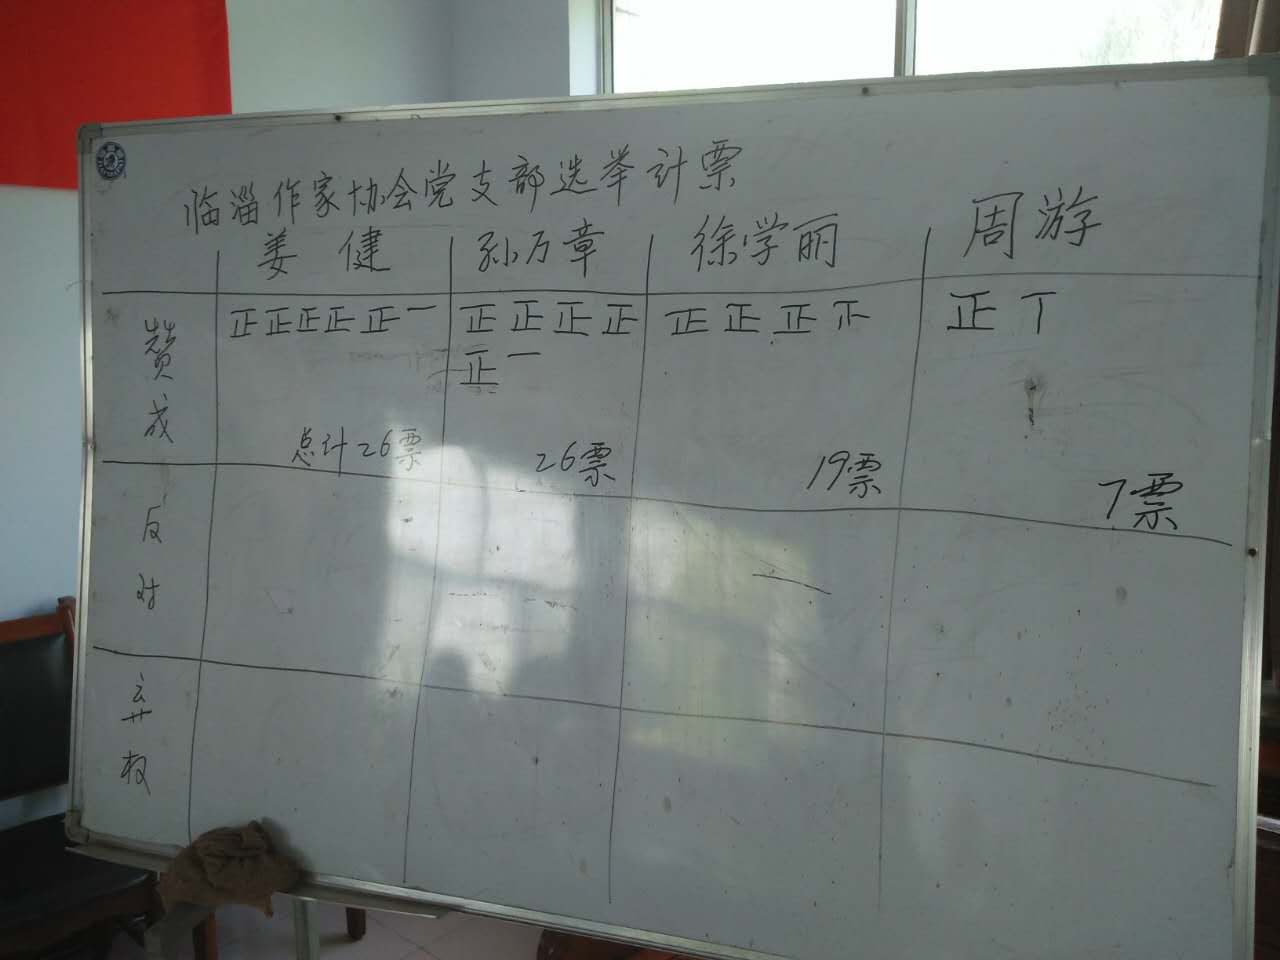 临淄作家协会党支部选举计票
姜健 孙万章 徐学丽 周游
赞成 正正正正正一 正正正正 正正正正 正丅
正一
总计26票 26票 19票 7票
反对 一
弃权